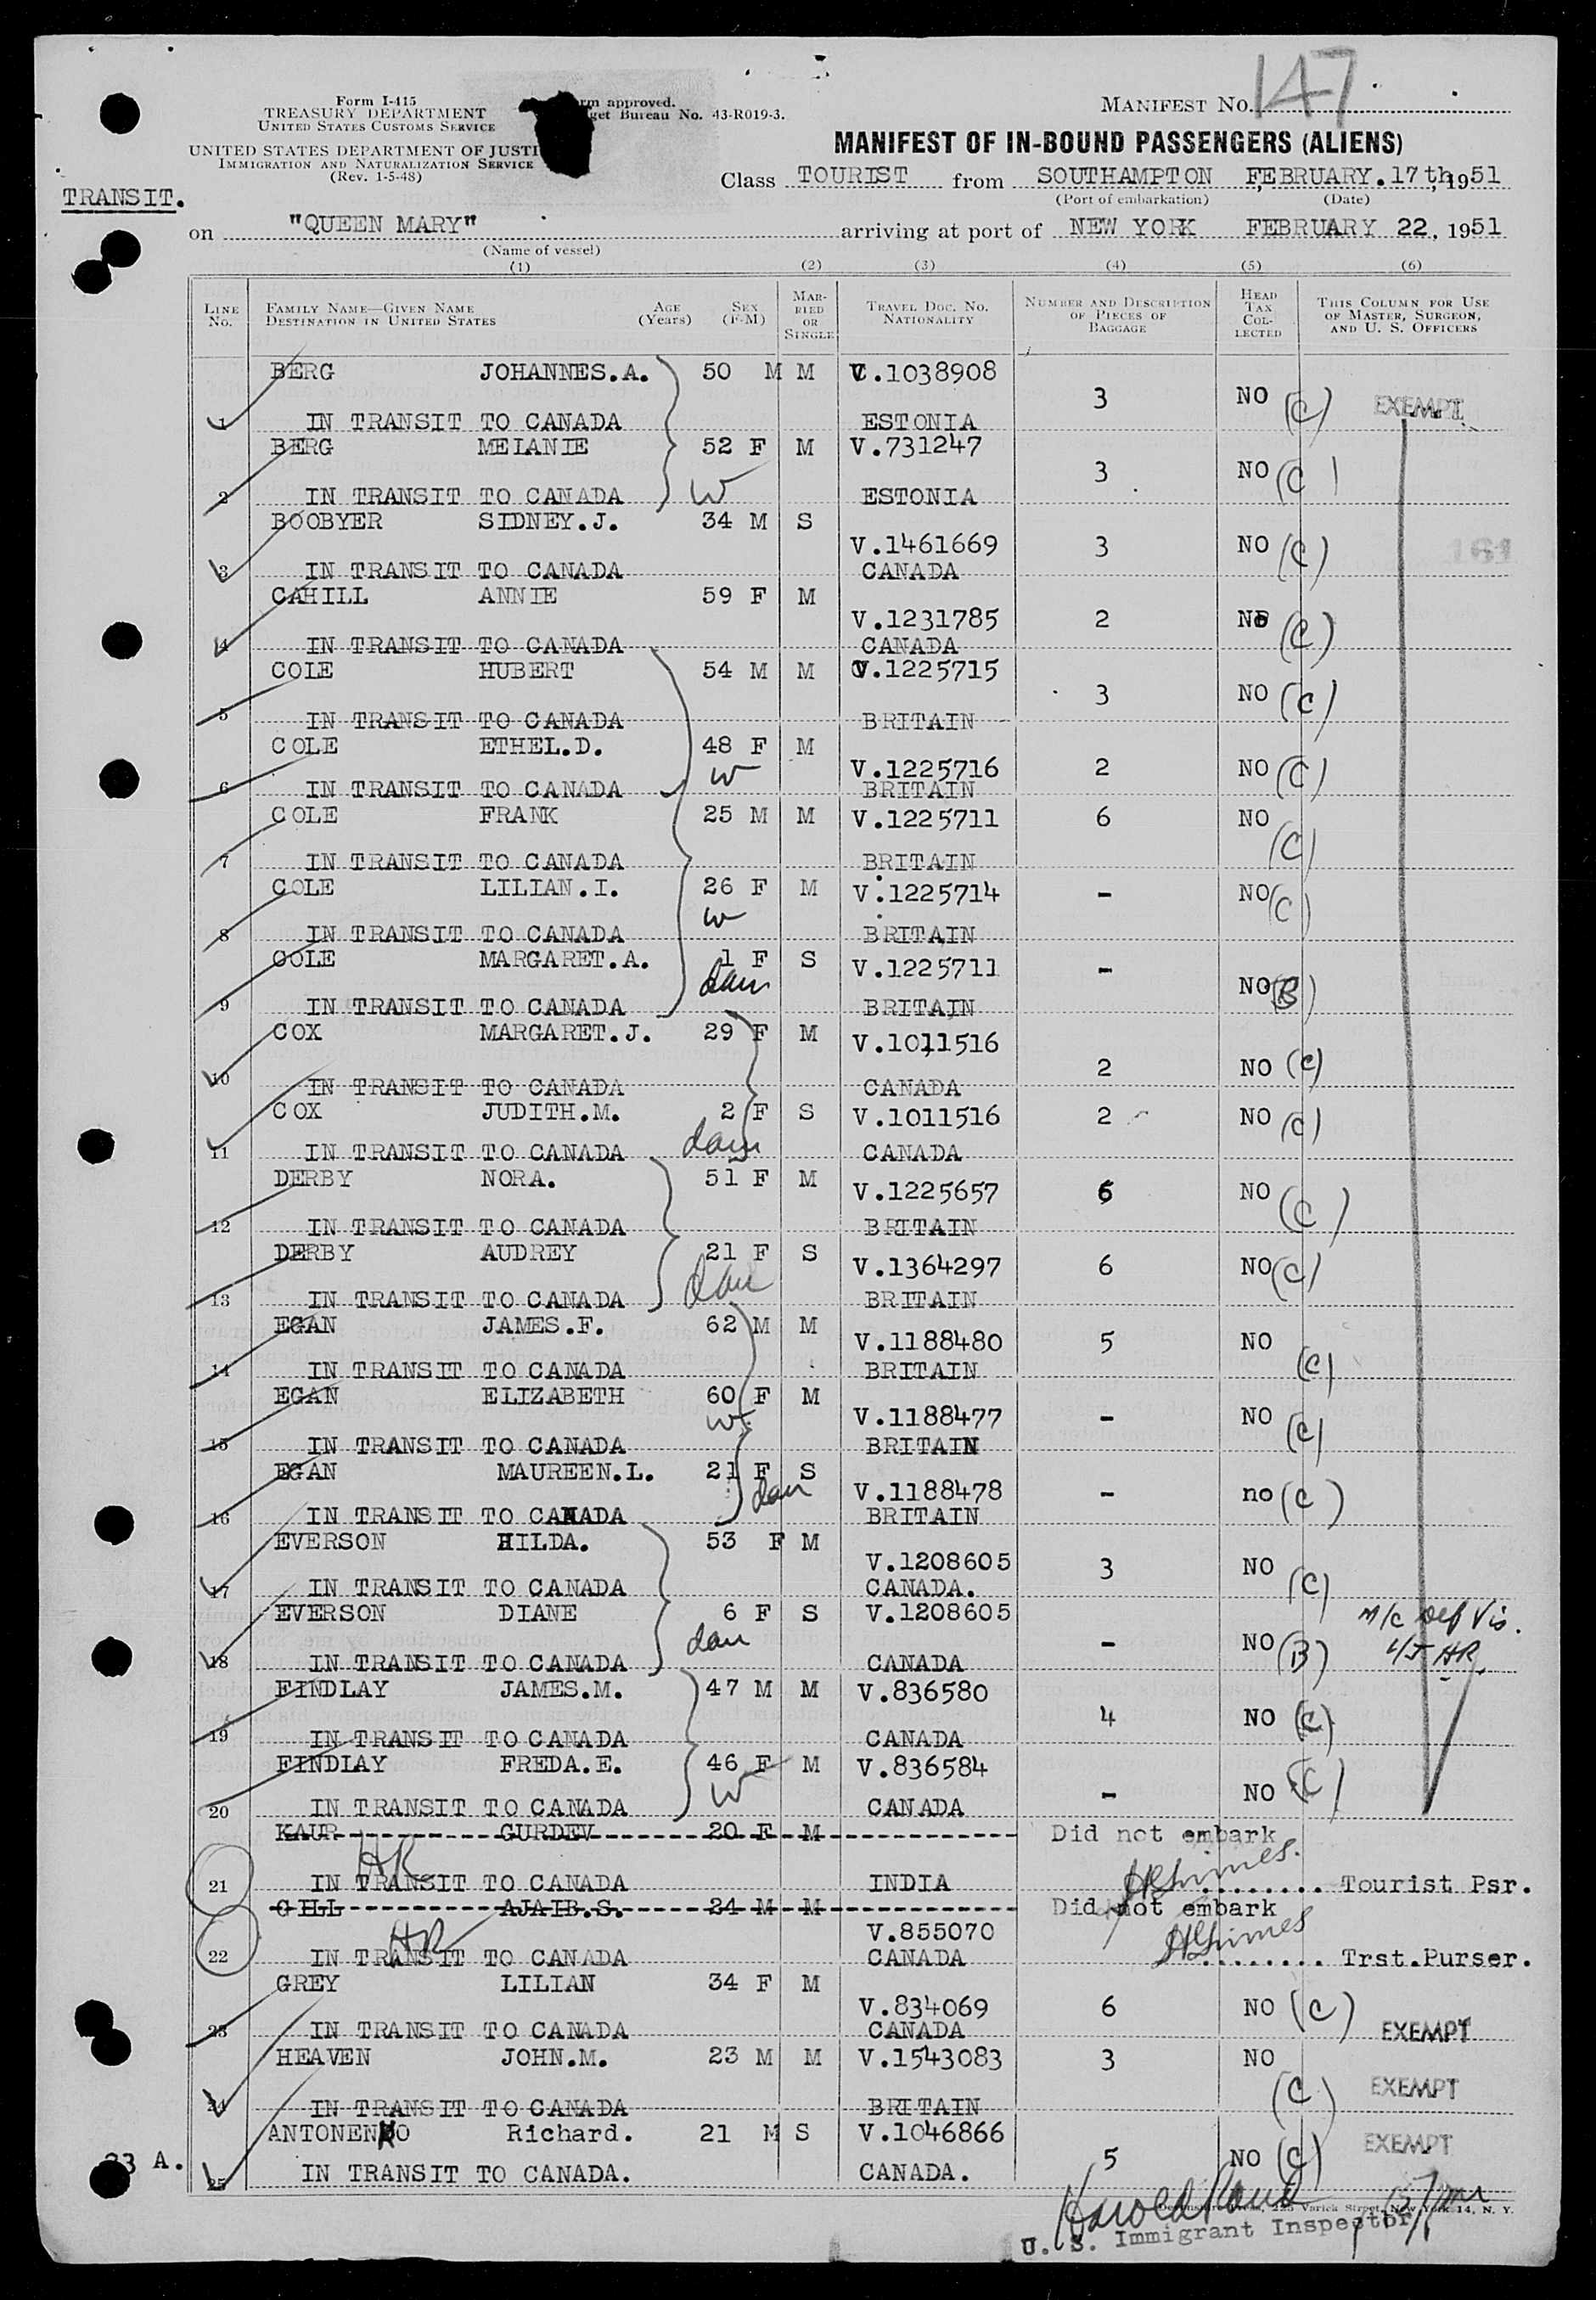 147
Form I-415
TREASURY DEPARTMENT
UNITED STATES CUSTOMS SERVICE
UNITED STATES DEPARTMENT OF JUSTI
IMMIGRATION AND NATURALIZATION SERVICE
(Rev. 1-5-48)
rm approved.
get Bureau No. 43-R019-3.
MANIFEST NO.
MANIFEST OF IN-BOUND PASSENGERS (ALIENS)
TRANSIT.
Class TOURIST from SOUTHAMPTON FEBRUARY.17th, 1951
(Port of embarkation) (Date)
on "QUEEN MARY" arriving at port of NEW YORK FEBRUARY 22, 1951
(Name of vessel)
(1) (2) (3) (4) (5) (6)
LINE NO. FAMILY NAME—GIVEN NAME DESTINATION IN UNITED STATES AGE (Years) SEX (F-M) MARRIED OR SINGLE TRAVEL DOC. NO. NATIONALITY NUMBER AND DESCRIPTION OF PIECES OF BAGGAGE HEAD TAX COLLECTED THIS COLUMN FOR USE OF MASTER, SURGEON, AND U. S. OFFICERS
BERG JOHANNES.A. 50 M M V.1038908
3 NO (C) EXEMPT
1 IN TRANSIT TO CANADA ESTONIA
BERG MELANIE 52 F M V.731247
W 3 NO (C)
2 IN TRANSIT TO CANADA ESTONIA
BOOBYER SIDNEY.J. 34 M S
V.1461669 3 NO (C)
3 IN TRANSIT TO CANADA CANADA
CAHILL ANNIE 59 F M
V.1231785 2 NO (C)
4 IN TRANSIT TO CANADA CANADA
COLE HUBERT 54 M M V.1225715
3 NO (C)
5 IN TRANSIT TO CANADA BRITAIN
COLE ETHEL.D. 48 F M
W V.1225716 2 NO (C)
6 IN TRANSIT TO CANADA BRITAIN
COLE FRANK 25 M M V.1225711 6 NO
(C)
7 IN TRANSIT TO CANADA BRITAIN
COLE LILIAN.I. 26 F M V.1225714 - NO (C)
W
8 IN TRANSIT TO CANADA BRITAIN
COLE MARGARET.A. 1 F S V.1225711 -
dau NO (B)
9 IN TRANSIT TO CANADA BRITAIN
COX MARGARET.J. 29 F M V.1011516
2 NO (C)
10 IN TRANSIT TO CANADA CANADA
COX JUDITH.M. 2 F S V.1011516 2 NO (C)
dau
11 IN TRANSIT TO CANADA CANADA
DERBY NORA. 51 F M V.1225657 6 NO
(C)
12 IN TRANSIT TO CANADA BRITAIN
DERBY AUDREY 21 F S V.1364297 6 NO (C)
dau
13 IN TRANSIT TO CANADA BRITAIN
EGAN JAMES.F. 62 M M V.1188480 5 NO
(C)
14 IN TRANSIT TO CANADA BRITAIN
EGAN ELIZABETH 60 F M
W V.1188477 - NO (C)
15 IN TRANSIT TO CANADA BRITAIN
EGAN MAUREEN.L. 21 F S
dau V.1188478 - no (C)
16 IN TRANSIT TO CANADA BRITAIN
EVERSON HILDA. 53 F M
V.1208605 3 NO (C)
17 IN TRANSIT TO CANADA CANADA.
EVERSON DIANE 6 F S V.1208605
dau - NO (B) M/C Def Vis.
4/5 HR
18 IN TRANSIT TO CANADA CANADA
FINDLAY JAMES.M. 47 M M V.836580
4 NO (C)
19 IN TRANSIT TO CANADA CANADA
FINDLAY FREDA.E. 46 F M V.836584
W - NO (C)
20 IN TRANSIT TO CANADA CANADA
KAUR GURDEV 20 F M Did not embark
HR
21 IN TRANSIT TO CANADA INDIA ........ Tourist Psr.
GILL AJAIB.S. 24 M M Did not embark
HR V.855070
22 IN TRANSIT TO CANADA CANADA ........ Trst.Purser.
GREY LILIAN 34 F M
V.834069 6 NO (C)
23 IN TRANSIT TO CANADA CANADA EXEMPT
HEAVEN JOHN.M. 23 M M V.1543083 3 NO
(C) EXEMPT
24 IN TRANSIT TO CANADA BRITAIN
ANTONENKO Richard. 21 M S V.1046866
5 NO (C) EXEMPT
23 A.
25 IN TRANSIT TO CANADA. CANADA.
Varick Street, New York 14, N. Y.
U. S. Immigrant Inspector